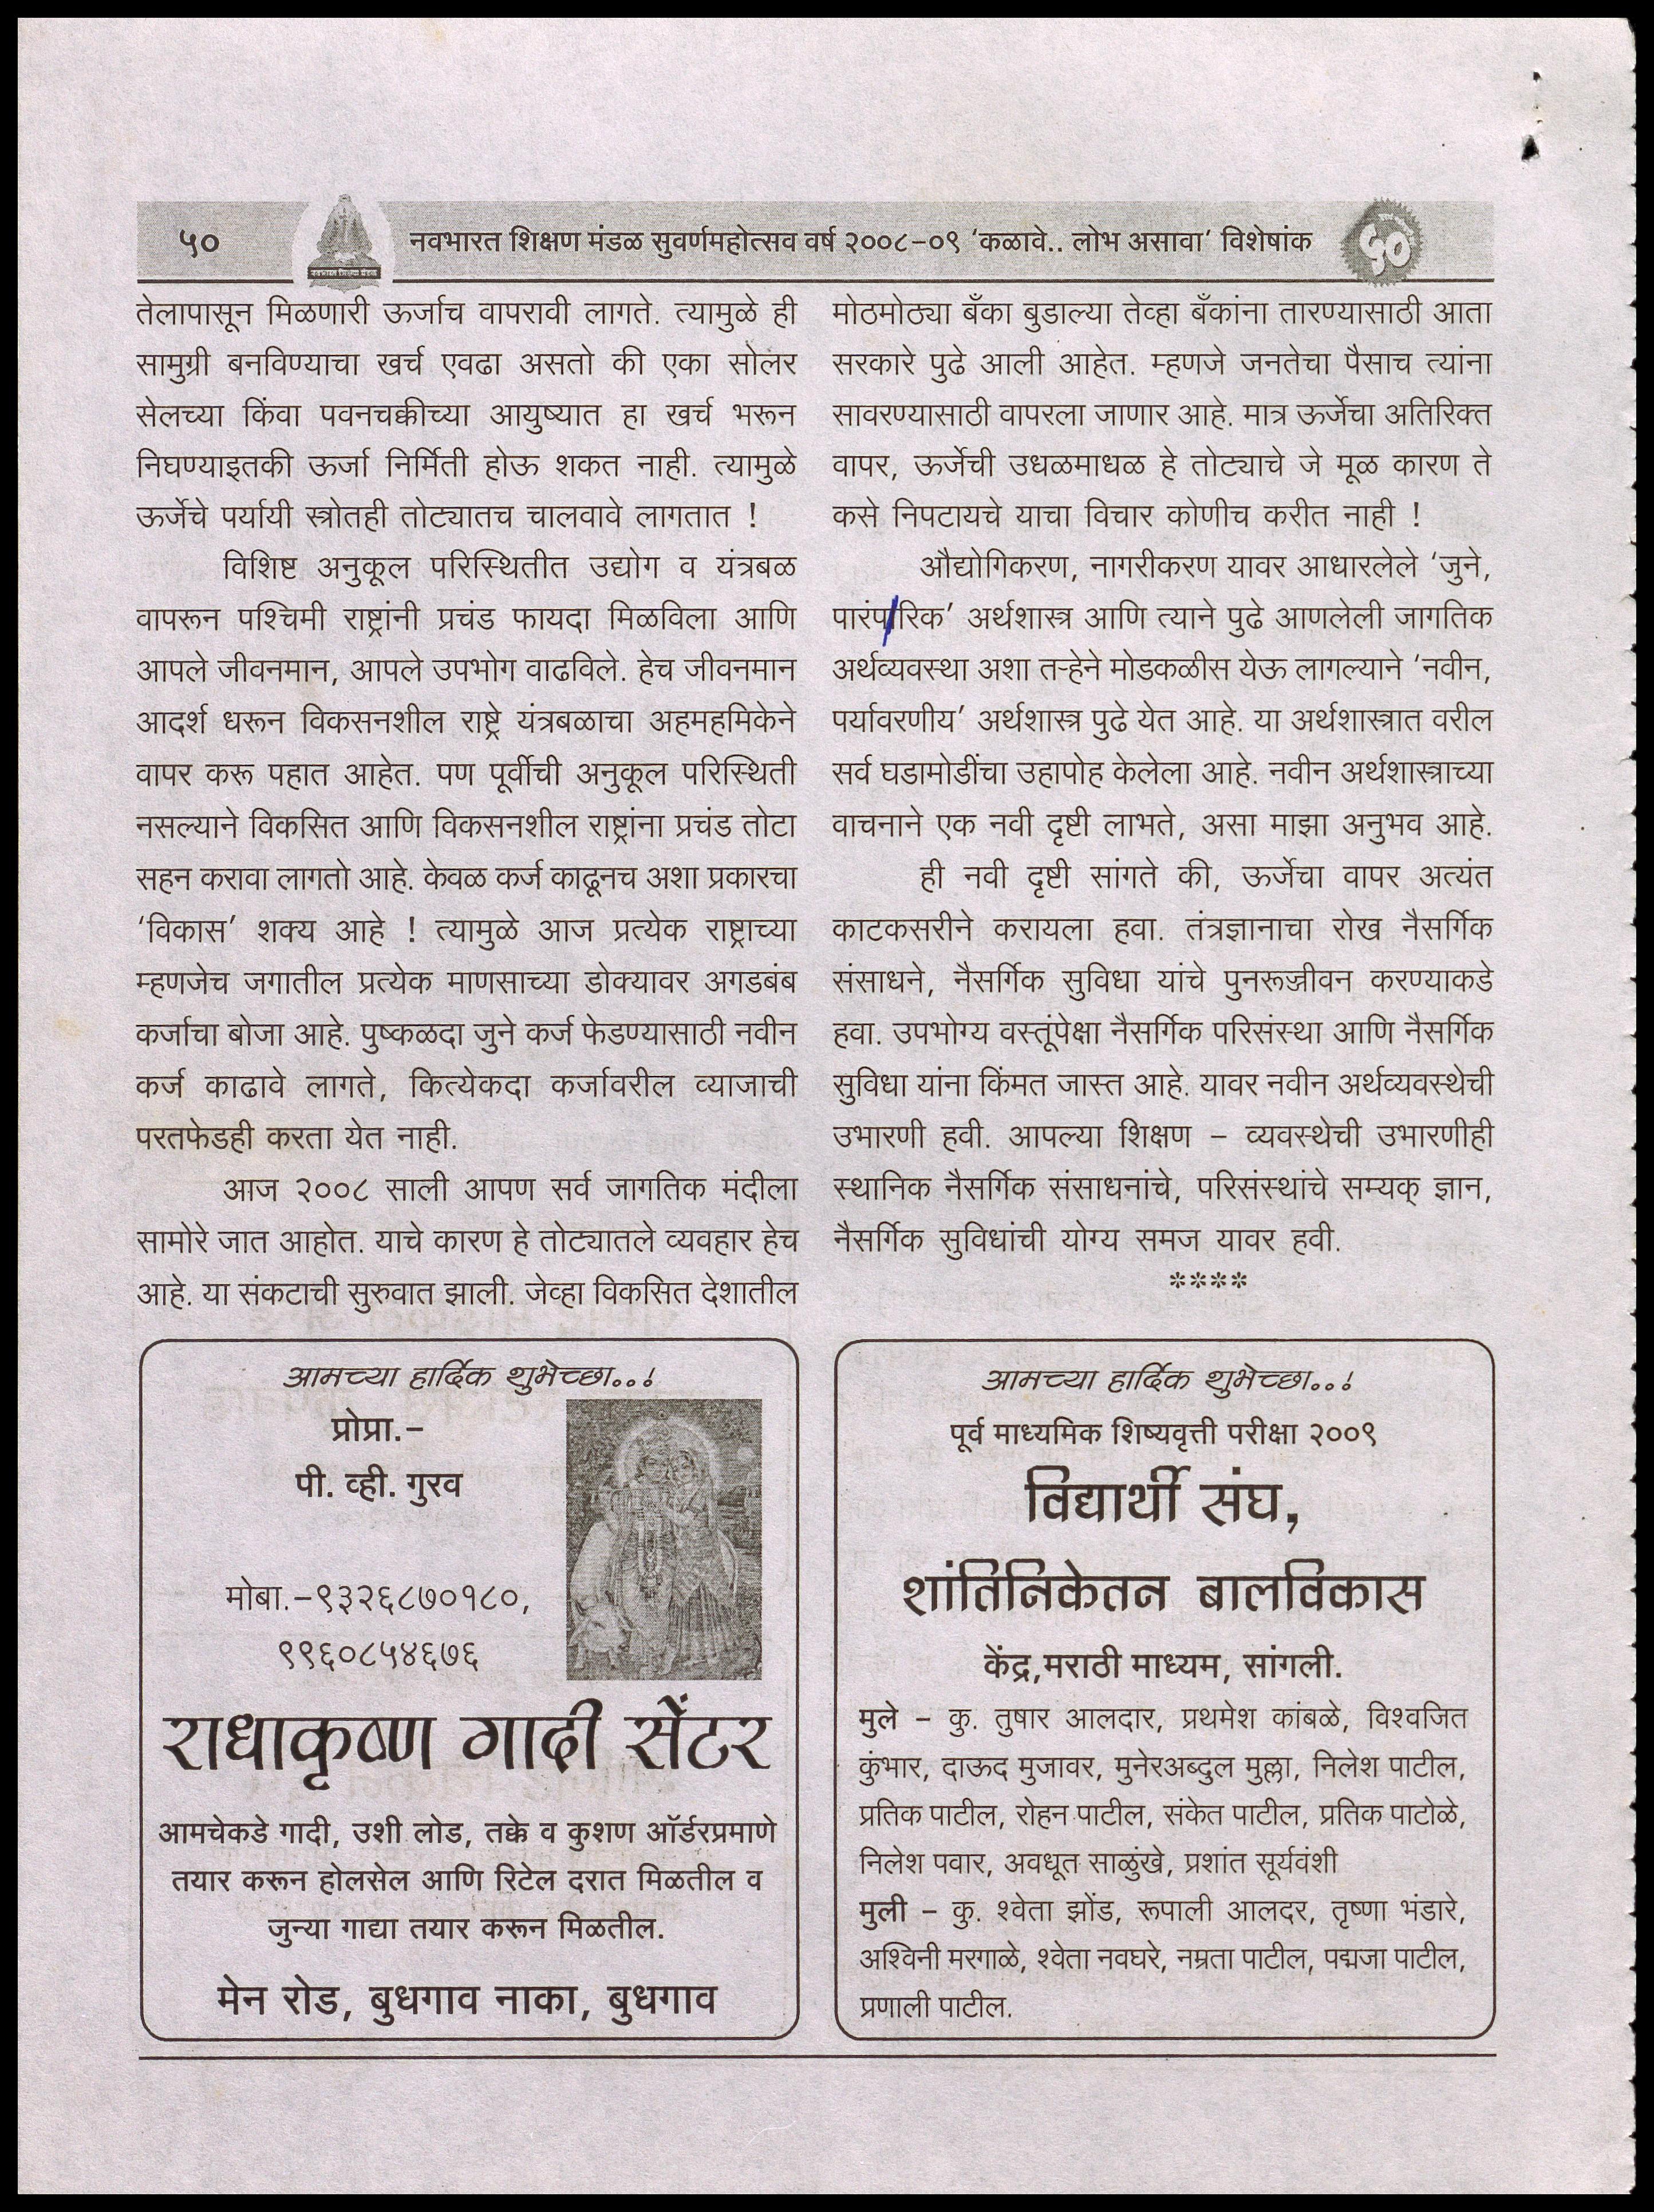 ५०
नवभारत शिक्षण मंडळ
नवभारत शिक्षण मंडळ सुवर्णमहोत्सव वर्ष २००८-०९ ‘कळावे.. लोभ असावा’ विशेषांक
५०
तेलापासून मिळणारी ऊर्जाच वापरावी लागते. त्यामुळे ही
सामुग्री बनविण्याचा खर्च एवढा असतो की एका सोलर
सेलच्या किंवा पवनचक्कीच्या आयुष्यात हा खर्च भरून
निघण्याइतकी ऊर्जा निर्मिती होऊ शकत नाही. त्यामुळे
ऊर्जेचे पर्यायी स्त्रोतही तोट्यातच चालवावे लागतात !
विशिष्ट अनुकूल परिस्थितीत उद्योग व यंत्रबळ
वापरून पश्चिमी राष्ट्रांनी प्रचंड फायदा मिळविला आणि
आपले जीवनमान, आपले उपभोग वाढविले. हेच जीवनमान
आदर्श धरून विकसनशील राष्ट्रे यंत्रबळाचा अहमहमिकेने
वापर करू पहात आहेत. पण पूर्वीची अनुकूल परिस्थिती
नसल्याने विकसित आणि विकसनशील राष्ट्रांना प्रचंड तोटा
सहन करावा लागतो आहे. केवळ कर्ज काढूनच अशा प्रकारचा
‘विकास’ शक्य आहे ! त्यामुळे आज प्रत्येक राष्ट्राच्या
म्हणजेच जगातील प्रत्येक माणसाच्या डोक्यावर अगडबंब
कर्जाचा बोजा आहे. पुष्कळदा जुने कर्ज फेडण्यासाठी नवीन
कर्ज काढावे लागते, कित्येकदा कर्जावरील व्याजाची
परतफेडही करता येत नाही.
आज २००८ साली आपण सर्व जागतिक मंदीला
सामोरे जात आहोत. याचे कारण हे तोट्यातले व्यवहार हेच
आहे. या संकटाची सुरुवात झाली. जेव्हा विकसित देशातील
मोठमोठ्या बँका बुडाल्या तेव्हा बँकांना तारण्यासाठी आता
सरकारे पुढे आली आहेत. म्हणजे जनतेचा पैसाच त्यांना
सावरण्यासाठी वापरला जाणार आहे. मात्र ऊर्जेचा अतिरिक्त
वापर, ऊर्जेची उधळमाधळ हे तोट्याचे जे मूळ कारण ते
कसे निपटायचे याचा विचार कोणीच करीत नाही !
औद्योगिकरण, नागरीकरण यावर आधारलेले ‘जुने,
पारंपारिक’ अर्थशास्त्र आणि त्याने पुढे आणलेली जागतिक
अर्थव्यवस्था अशा तऱ्हेने मोडकळीस येऊ लागल्याने ‘नवीन,
पर्यावरणीय’ अर्थशास्त्र पुढे येत आहे. या अर्थशास्त्रात वरील
सर्व घडामोडींचा उहापोह केलेला आहे. नवीन अर्थशास्त्राच्या
वाचनाने एक नवी दृष्टी लाभते, असा माझा अनुभव आहे.
ही नवी दृष्टी सांगते की, ऊर्जेचा वापर अत्यंत
काटकसरीने करायला हवा. तंत्रज्ञानाचा रोख नैसर्गिक
संसाधने, नैसर्गिक सुविधा यांचे पुनरूज्जीवन करण्याकडे
हवा. उपभोग्य वस्तूंपेक्षा नैसर्गिक परिसंस्था आणि नैसर्गिक
सुविधा यांना किंमत जास्त आहे. यावर नवीन अर्थव्यवस्थेची
उभारणी हवी. आपल्या शिक्षण – व्यवस्थेची उभारणीही
स्थानिक नैसर्गिक संसाधनांचे, परिसंस्थांचे सम्यक् ज्ञान,
नैसर्गिक सुविधांची योग्य समज यावर हवी.
****
आमच्या हार्दिक शुभेच्छा..!
प्रोप्रा.-
पी. व्ही. गुरव
मोबा.-९३२६८७०१८०,
९९६०८५४६७६
राधाकृष्ण गादी सेंटर
आमचेकडे गादी, उशी लोड, तक्के व कुशण ऑर्डरप्रमाणे
तयार करून होलसेल आणि रिटेल दरात मिळतील व
जुन्या गाद्या तयार करून मिळतील.
मेन रोड, बुधगाव नाका, बुधगाव
आमच्या हार्दिक शुभेच्छा..!
पूर्व माध्यमिक शिष्यवृत्ती परीक्षा २००९
विद्यार्थी संघ,
शांतिनिकेतन बालविकास
केंद्र,मराठी माध्यम, सांगली.
मुले – कु. तुषार आलदार, प्रथमेश कांबळे, विश्वजित
कुंभार, दाऊद मुजावर, मुनेरअब्दुल मुल्ला, निलेश पाटील,
प्रतिक पाटील, रोहन पाटील, संकेत पाटील, प्रतिक पाटोळे,
निलेश पवार, अवधूत साळुंखे, प्रशांत सूर्यवंशी
मुली – कु. श्वेता झोंड, रूपाली आलदर, तृष्णा भंडारे,
अश्विनी मरगाळे, श्वेता नवघरे, नम्रता पाटील, पद्मजा पाटील,
प्रणाली पाटील.